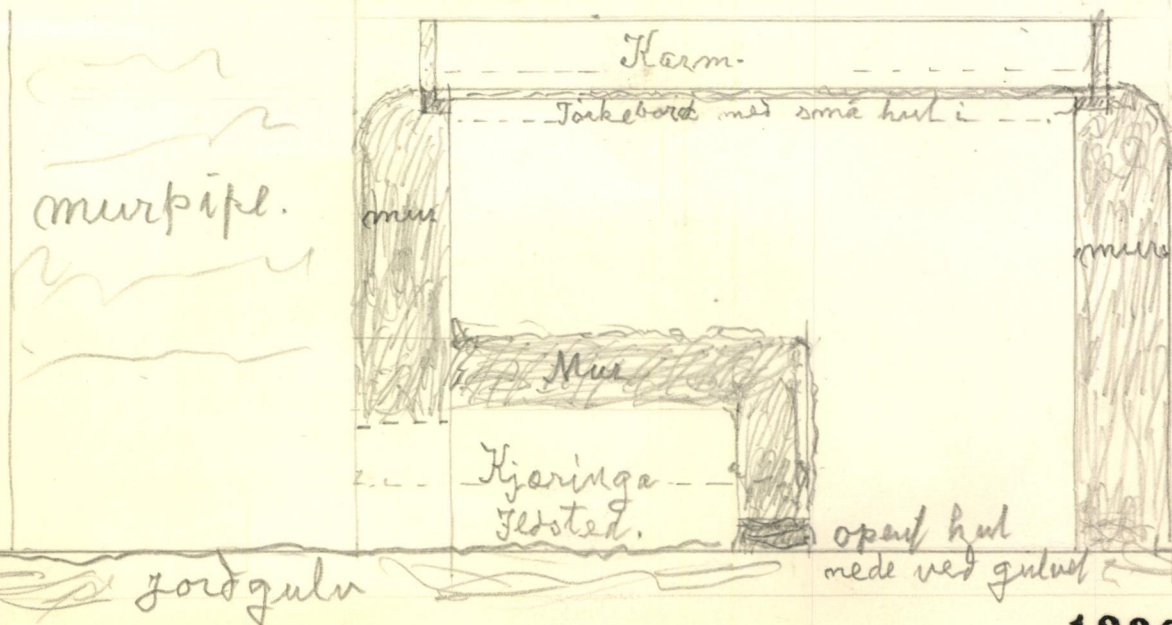 Karm.
Törkebord med små hul i
murpipe.
mur
mur
Mur
Kjæringa
Ildsted.
opent hul
nede ved gulvet
Jordgulv